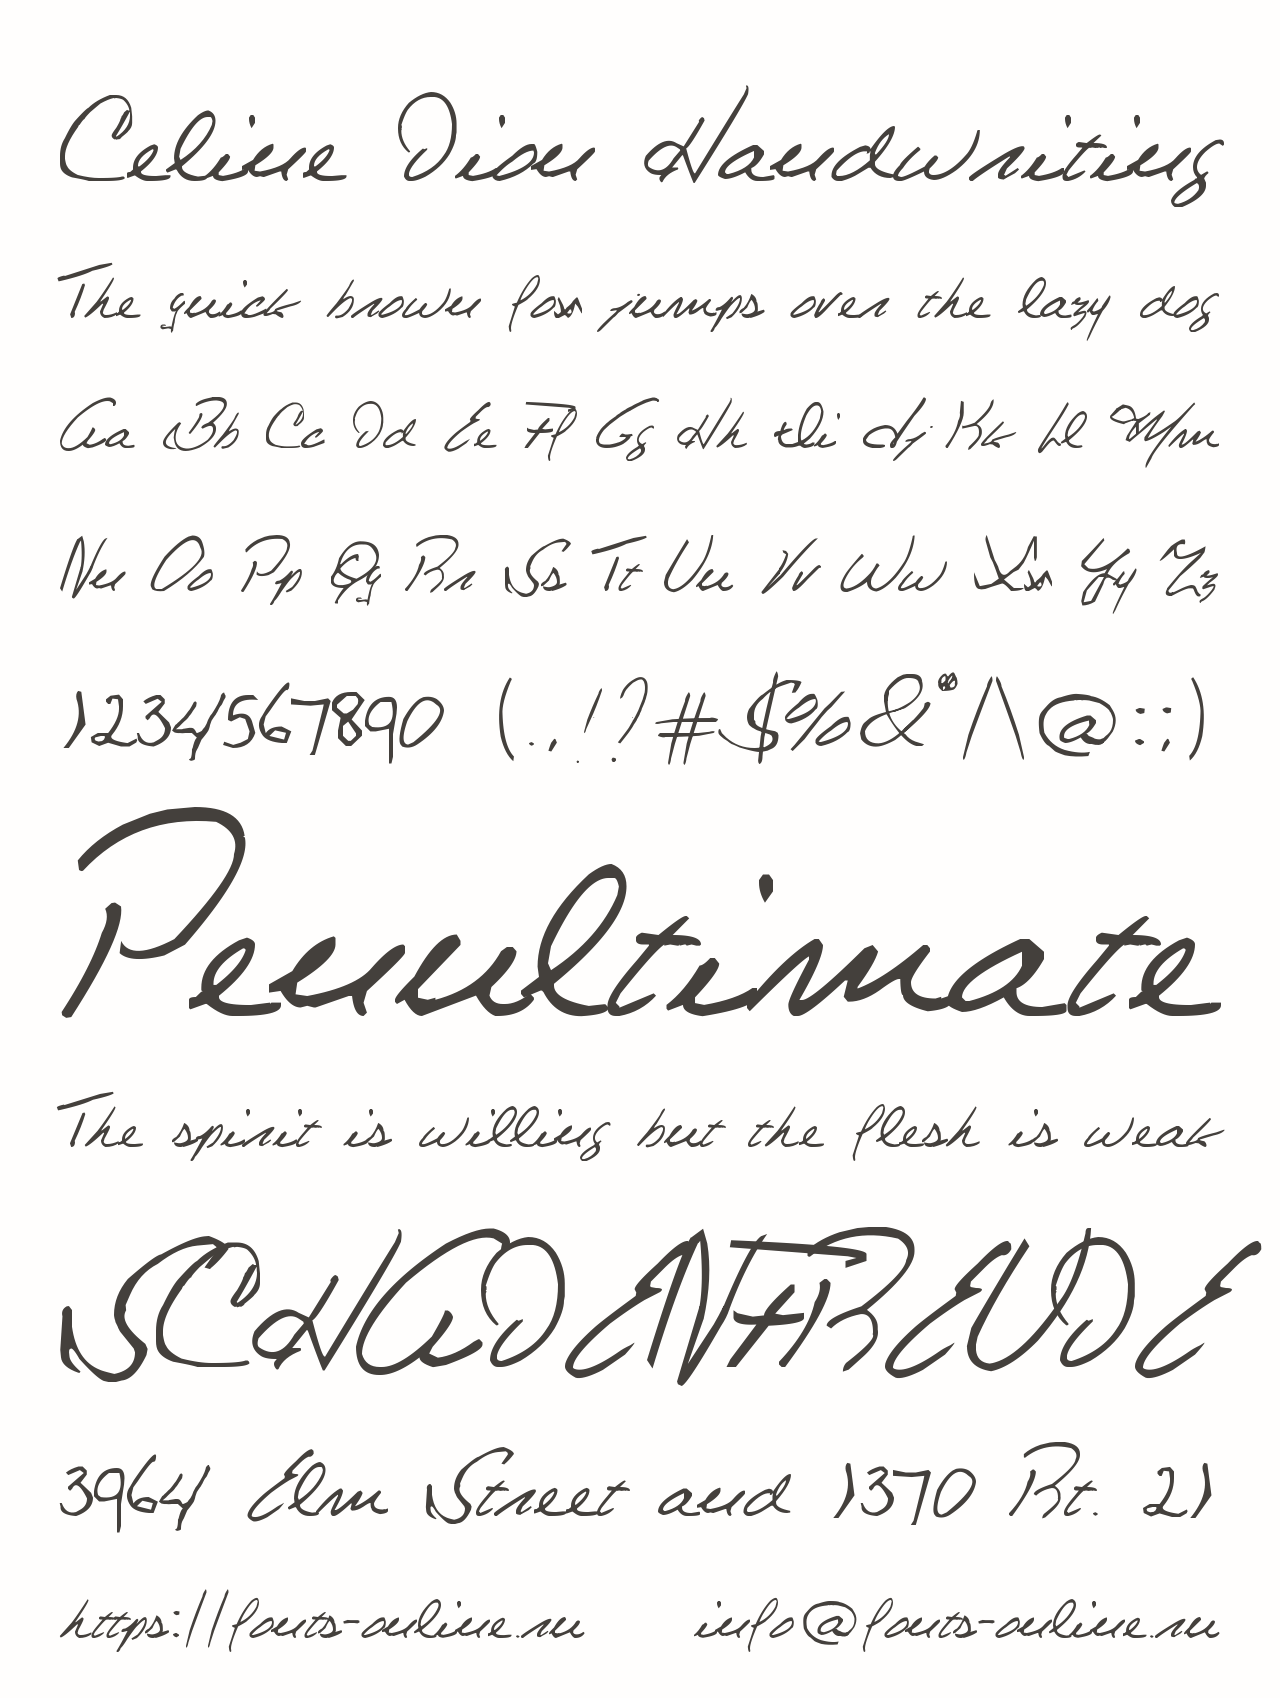 Celine Dion Handwriting
The quick brown fox jumps over the lazy dog
Aa Bb Cc Dd Ee Ff Gg Hh Ii Jj Kk Ll Mm
Nn Oo Pp Qq Rr Ss Tt Uu Vv Ww Xx Yy Zz
1234567890 (.,!?#$%&*/\@:;)
Penultimate
The spirit is willing but the flesh is weak
SCHADENFREUDE
3964 Elm Street and 1370 Rt. 21
https://fonts-online.ru info@fonts-online.ru